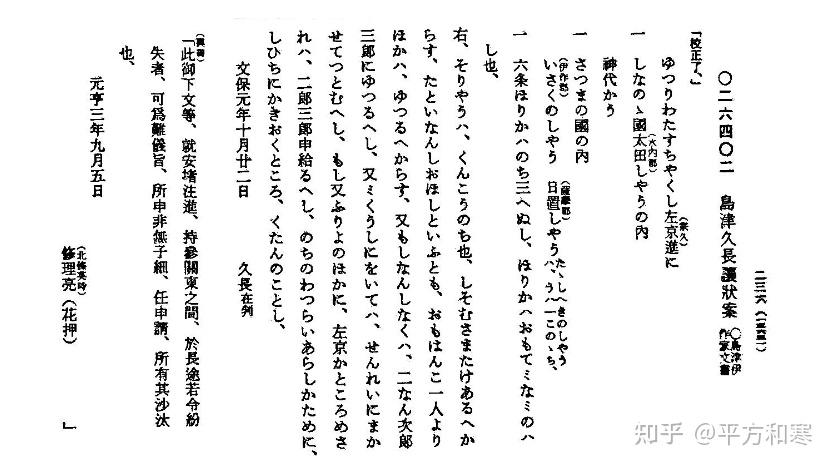 二三六（一三三一）
〇二六四〇二　島津久長讓狀案　〇島津伊作家文書
「校正了、」
ゆつりわたすちやくし左京進に
（家久）
一　しなのゝ國太田しやうの內
（水內郡）
神代かう
一　さつまの國の內
いさくのしやう　日置しやう
（伊作郡）（薩摩郡）
たゝしへきのしやうハ、うハ一このゝち、
一　六条ほりかハのち三へぬし、ほりかハおもてミなミのハ
しも也、
右、そりやうハ、くんこうのち也、しそむさまたけあるへか
らす、たといなんしおほしといふとも、おもはんこ一人より
ほかハ、ゆつるへからす、又もしなんしなくハ、二なん次郎
三郎にゆつるへし、又ミくうしにをいてハ、せんれいにまか
せてつとむへし、もし又ふりよのほかに、左京かところめさ
れハ、二郎三郎申給るへし、のちのわつらいあらしかために、
しひちにかきおくところ、くたんのことし、
文保元年十月廿二日　久長在判
（裏書）
「此御下文等、就安堵注進、持參關東之間、於長途若令紛
失者、可爲難儀旨、所申非無子細、任申請、所有其沙汰
也、
元亨三年九月五日
（北條英時）
修理亮（花押）　」
知乎 @平方和寒